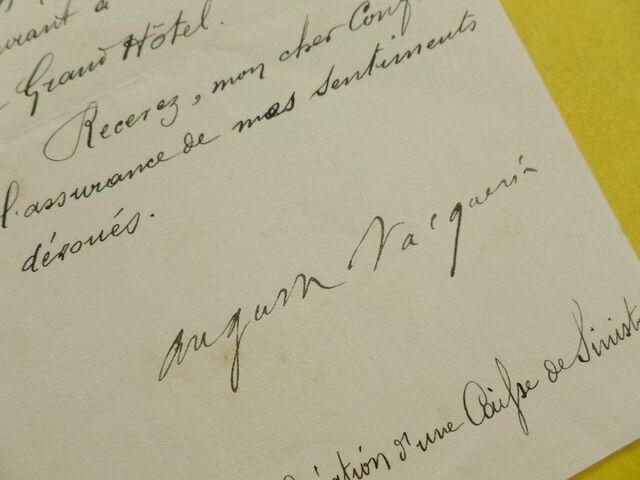 urant à
Grand Hôtel.
Recevez, mon cher Conf
l'assurance de mes sentiments
dévoués.
Auguste Vacquerie
d'une Caisse de Sinist